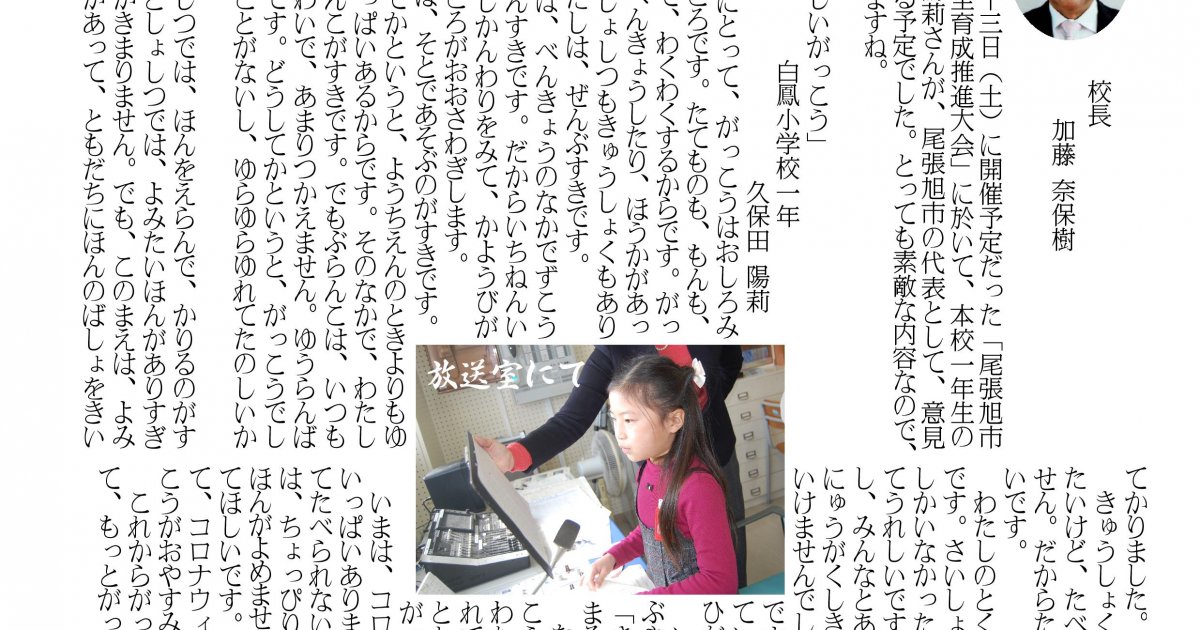 校長
加藤 奈保樹
十三日（土）に開催予定だった「尾張旭市
育成推進大会」に於いて、本校一年生の
莉さんが、尾張旭市の代表として、意見
る予定でした。とっても素敵な内容なので、
ますね。
しいがっこう」
白鳳小学校一年
久保田 陽莉
にとって、がっこうはおしろみ
ころです。たてものも、もんも、
で、わくわくするからです。がっ
んきょうしたり、ほうかがあっ
しょしつもきゅうしょくもあり
たしは、ぜんぶすきです。
は、べんきょうのなかでずこう
んすきです。だからいちねんい
しかんわりをみて、かようびが
ころがおおさわぎします。
は、そとであそぶのがすきです。
てかというと、ようちえんのときよりもゆ
っぱいあるからです。そのなかで、わたし
んこがすきです。でもぶらんこは、いつも
わいで、あまりつかえません。ゆうらんば
です。どうしてかというと、がっこうでし
ことがないし、ゆらゆらゆれてたのしいか
しつでは、ほんをえらんで、かりるのがす
としょしつでは、よみたいほんがありすぎ
がきまりません。でも、このまえは、よみ
があって、ともだちにほんのばしょをきい
放送室にて
てかりました。
きゅうしょく
たいけど、たべ
せん。だからた
いです。
わたしのとく
です。さいしょ
しかいなかった
てうれしいです
し、みんなとあ
にゅうがくしき
いけませんでし
いまは、コロ
いっぱいありま
てたべられない
は、ちょっぴり
ほんがよめませ
てほしいです。
て、コロナウィ
こうがおやすみ
これからがっ
て、もっとがっ